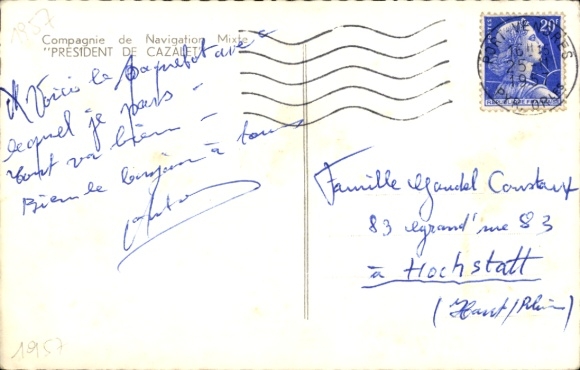 1957
Compagnie de Navigation Mixte
"PRÉSIDENT DE CAZALET"
Voici le paquebot avec
lequel je pars -
tout va bien -
Bien le bonjour à tous
20F
REPUBLIQUE FRANCAISE
25
Famille Gandel Constant
83 grand' rue 83
à Hochstatt
(Haut/Rhin)
1957